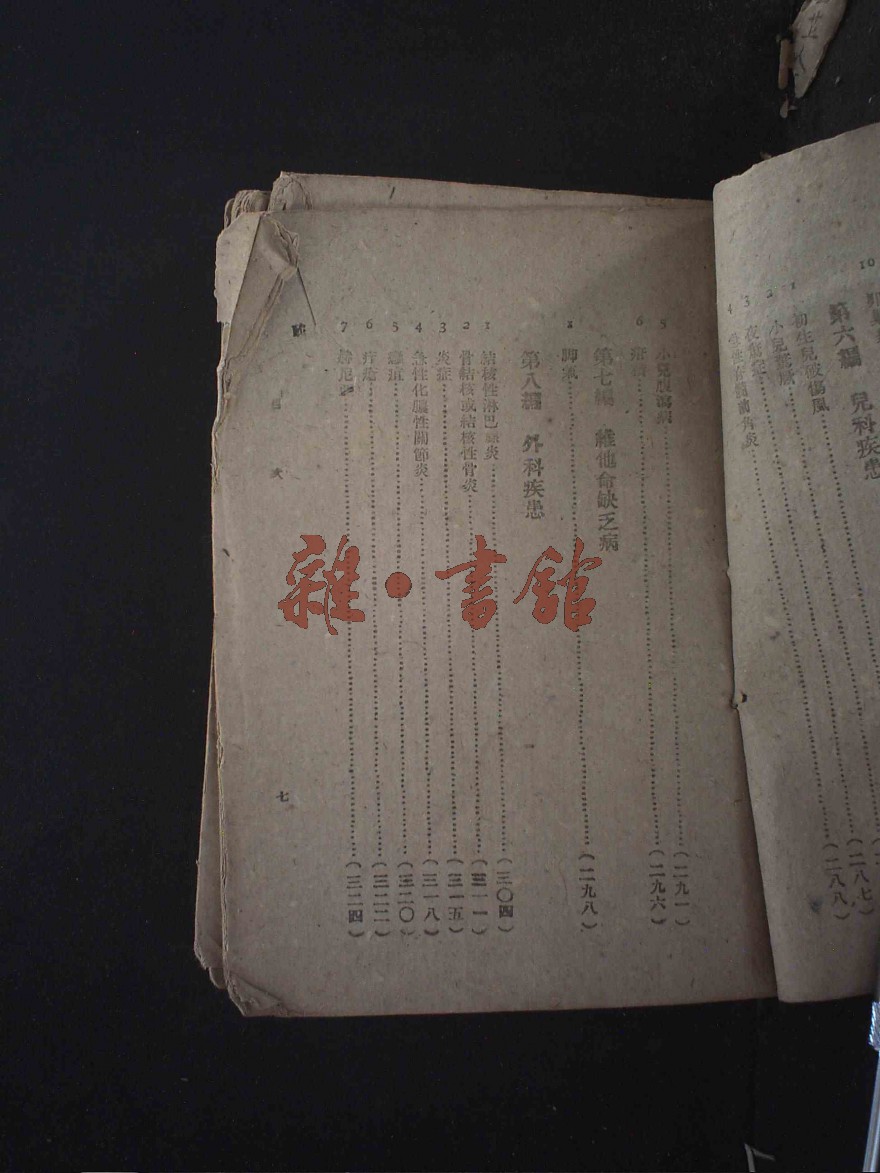 10
第六編 兒科疾患
1 初生兒破傷風
2 小兒
3 夜
4 急性 前角炎
(二八七)
(二八八)
5 小兒腹瀉病 (二九一)
6 (二九六)
第七編 維他命缺乏病
1 脚氣 (二九八)
第八編 外科疾患
1 結核性淋巴 炎 (三〇四)
2 骨結核或結核性骨炎 (三一一)
3 炎症 (三一五)
4 急性化膿性關節炎 (三一八)
5 疽 (三二〇)
6 疔瘡 (三二二)
7 (三二四)
目 次
七
雜·書館